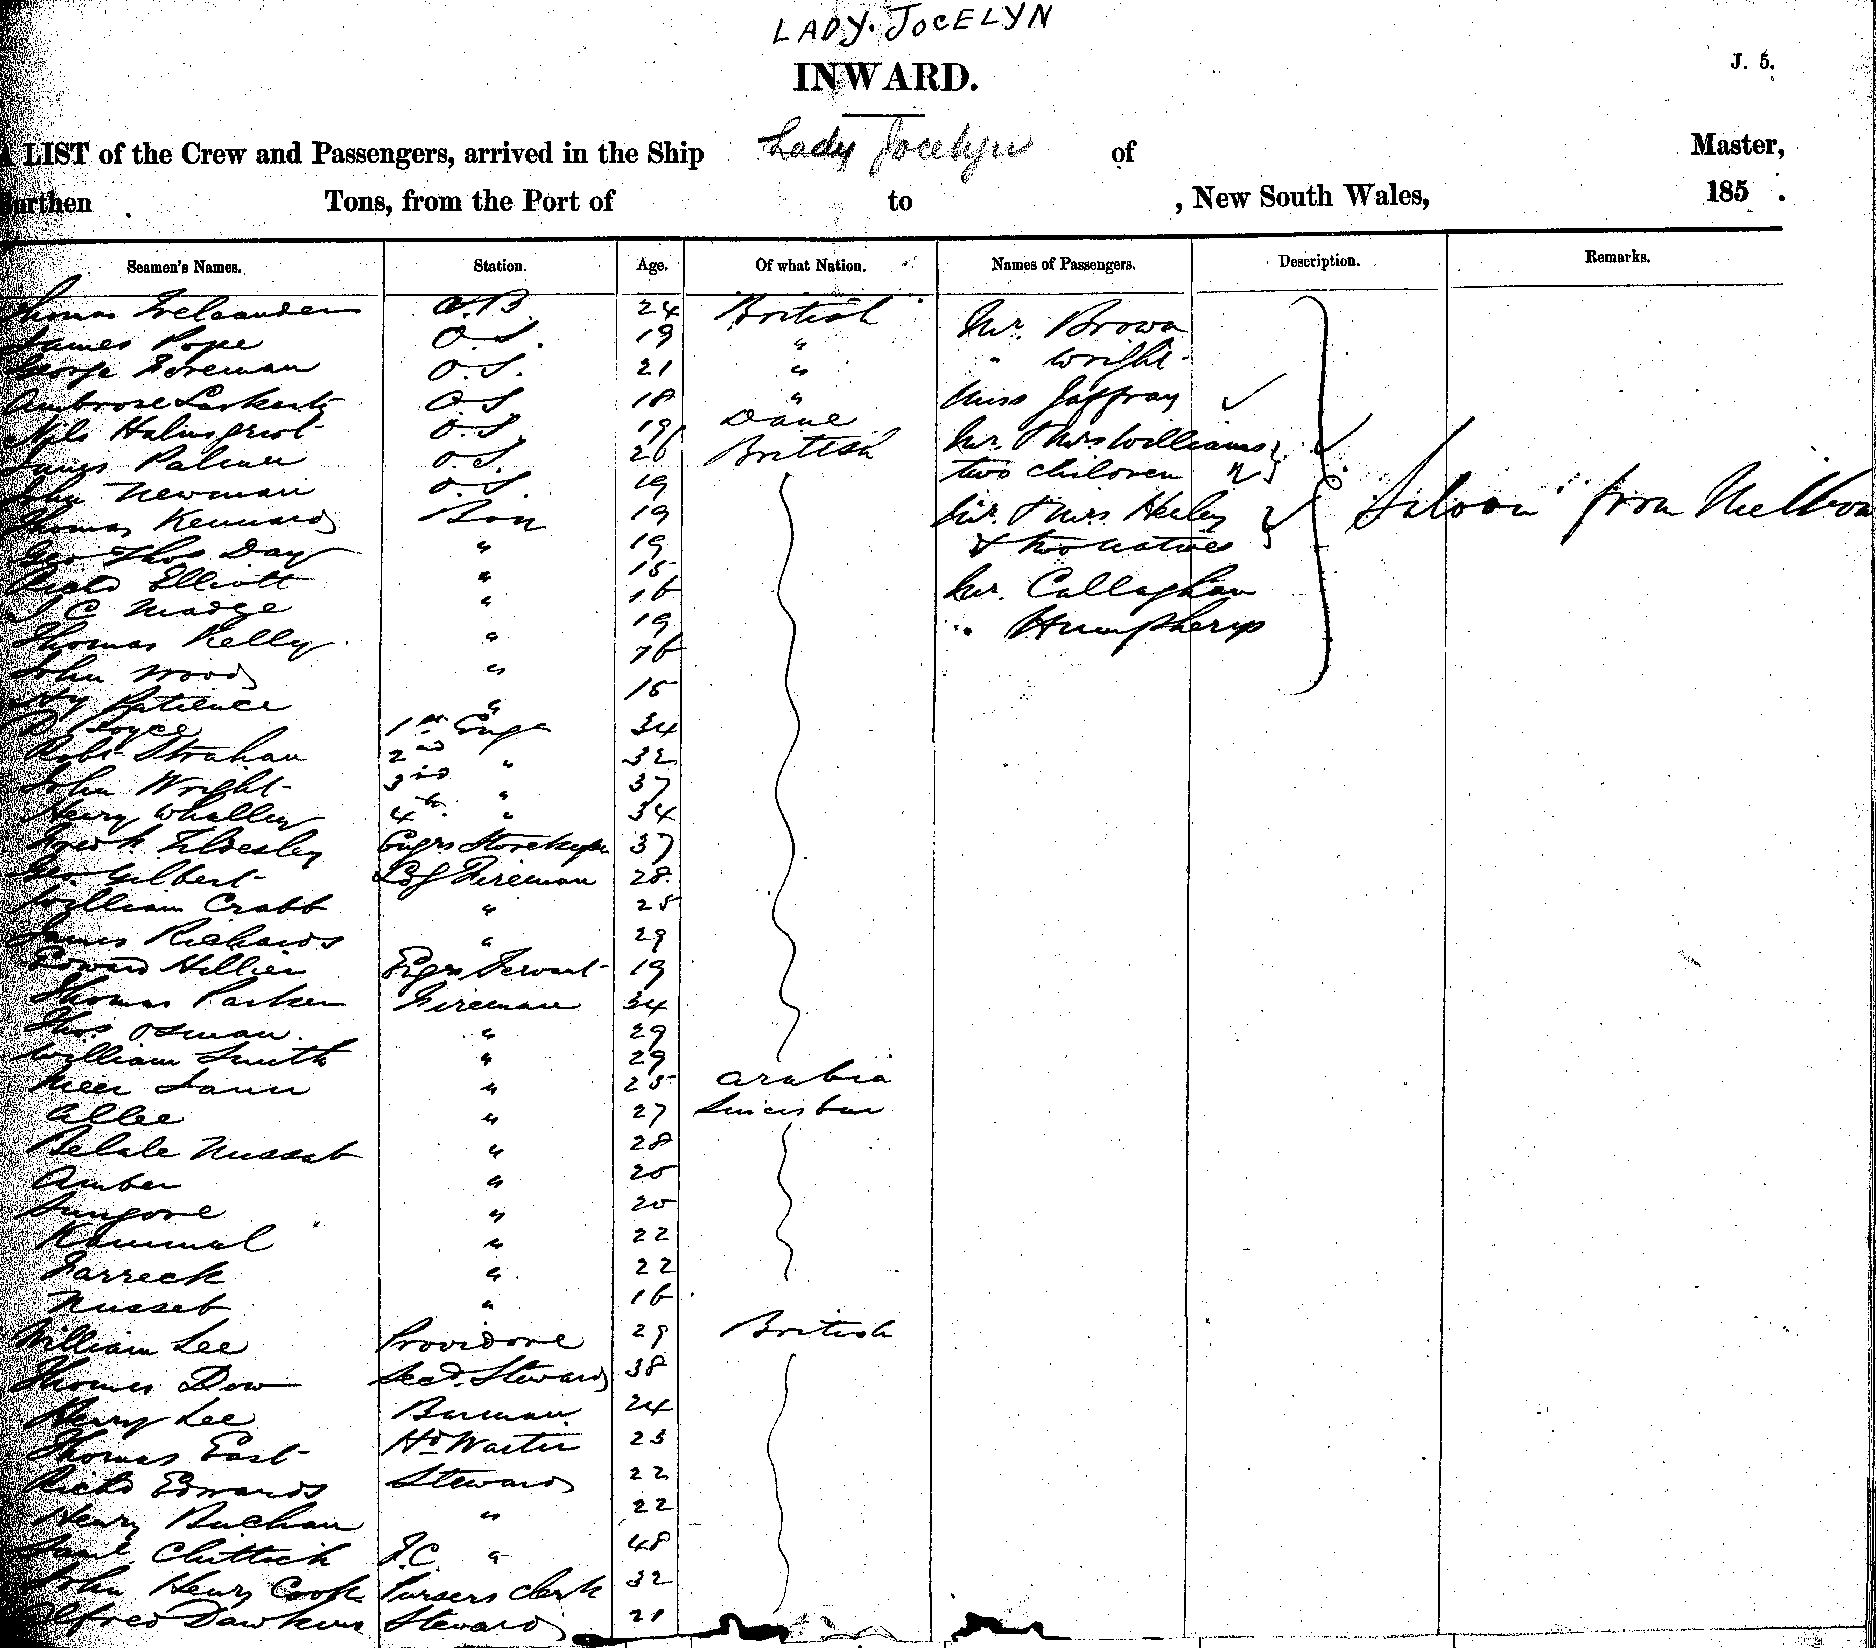 LADY. JOCELYN
INWARD.
J. 5.
A LIST of the Crew and Passengers, arrived in the Ship Lady Jocelyn of Master,
Burthen Tons, from the Port of to , New South Wales, 185 .
Seamen's Names. Station. Age. Of what Nation. Names of Passengers. Description. Remarks.
Thomas A.B. 24 British Mr. Brown
James Pope O.S. 19 " " Wright
George Foreman O.S. 21 "
Ambrose O.S 18 " Miss Jaffray ✓
Nils O.S. 19 Dane Mr. & Mrs Williams ✓
James Palmer O.S. 26 British two children
John Newman O.S. 19 Mr. & Mrs. Heeley Saloon from
Thomas Kennard Boy 19 & two natives
Geo Thos Day " 19
Richd Elliott " 15 Mr. Callaghan
J C Madge " 16
Thomas Kelly " 19 " Humpherys
John Wood " 16
Hy Patience " 15
D. Joyce 1st Engr 34
Robt Strahan 2nd " 32
John Wright 3rd " 37
Henry Whalley 4th " 34
Fredk Ildesley Engrs Storekeeper 37
Geo Gilbert Ldg Fireman 28
William Crabb " 25
James Richards " 29
Edward Hillier Engrs Servant 19
Thomas Parker Fireman 34
Thos. Osman " 29
William Smith " 29
Meer " 25 Arabia
Allee " 27
Belale Nusseb " 28
Amber " 20
Sungore " 20
Kammal " 22
Farreck " 22
Nusseb " 16
William Lee Providore 29 British
Thomas Dow Steward 38
Henry Lee Barman 24
Thomas East Hd Waiter 23
Richd Edwards Steward 22
Henry Buchan " 22
Saml Chittick " 48
John Henry Cook Pursers Clerk 32
Alfred Dawkins Steward 21